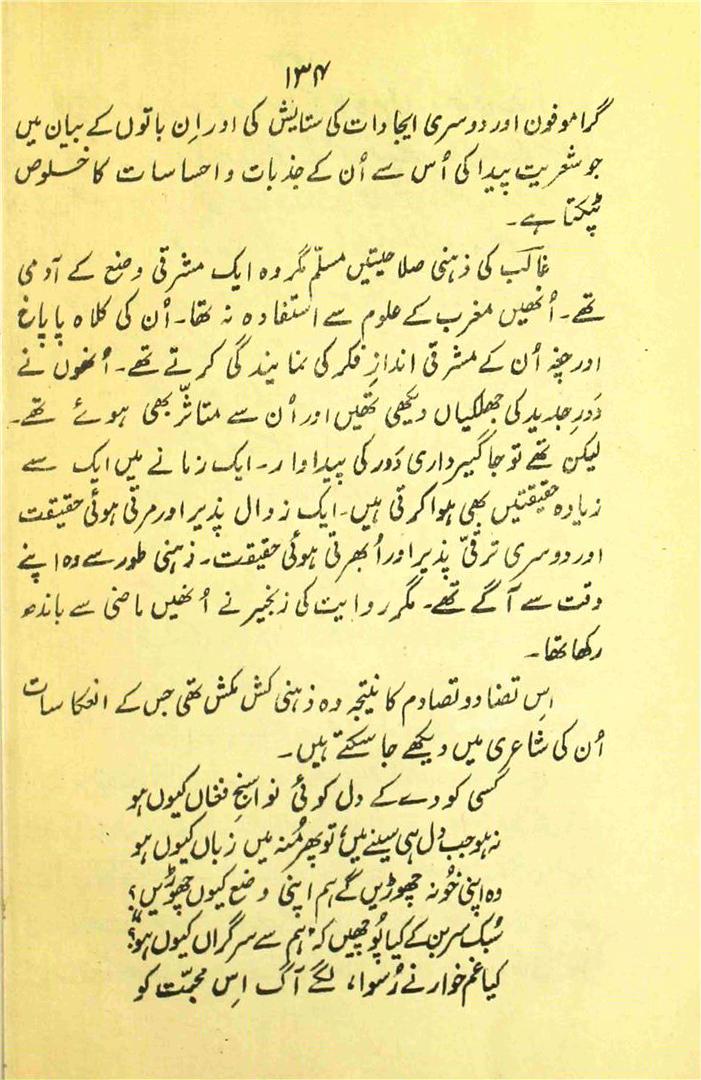 ۱۳۴
گراموفون اور دوسری ایجادات کی ستایش کی اور اِن باتوں کے بیان میں
جو شعریت پیدا کی اُس سے اُن کے جذبات و احساسات کا خلوص
ٹپکتا ہے۔
غالب کی ذہنی صلاحیتیں مسلّم مگر وہ ایک مشرقی وضع کے آدمی
تھے۔ اُنھیں مغرب کے علوم سے استفادہ نہ تھا۔ اُن کی کلاہ پاپاخ
اور چغہ اُن کے مشرقی اندازِ فکر کی نمایندگی کرتے تھے۔ اُنھوں نے
دَورِ جدید کی جھلکیاں دیکھی تھیں اور اُن سے متاثّر بھی ہوئے تھے۔
لیکن تھے تو جاگیرداری دَور کی پیداوار۔ ایک زمانے میں ایک سے
زیادہ حقیقتیں بھی ہوا کرتی ہیں۔ ایک زوال پذیر اور مرتی ہوئی حقیقت
اور دوسری ترقّی پذیر اور اُبھرتی ہوئی حقیقت۔ ذہنی طور سے وہ اپنے
وقت سے آگے تھے۔ مگر روایت کی زنجیر نے اُنھیں ماضی سے باندھ
رکھا تھا۔
اِس تضاد و تصادم کا نتیجہ وہ ذہنی کش مکش تھی جس کے انعکاسات
اُن کی شاعری میں دیکھے جا سکتے ہیں۔
کسی کو دے کے دل کوئی نواسنجِ فغاں کیوں ہو
نہ ہو جب دل ہی سینے میں، تو پھر مُنہ میں زباں کیوں ہو
وہ اپنی خُو نہ چھوڑیں گے ہم اپنی وضع کیوں چھوڑیں؟
سُبک سر بن کے کیا پُوچھیں کہ "ہم سے سرگراں کیوں ہو؟"
کیا غم خوار نے رُسوا، لگے آگ اِس محبّت کو